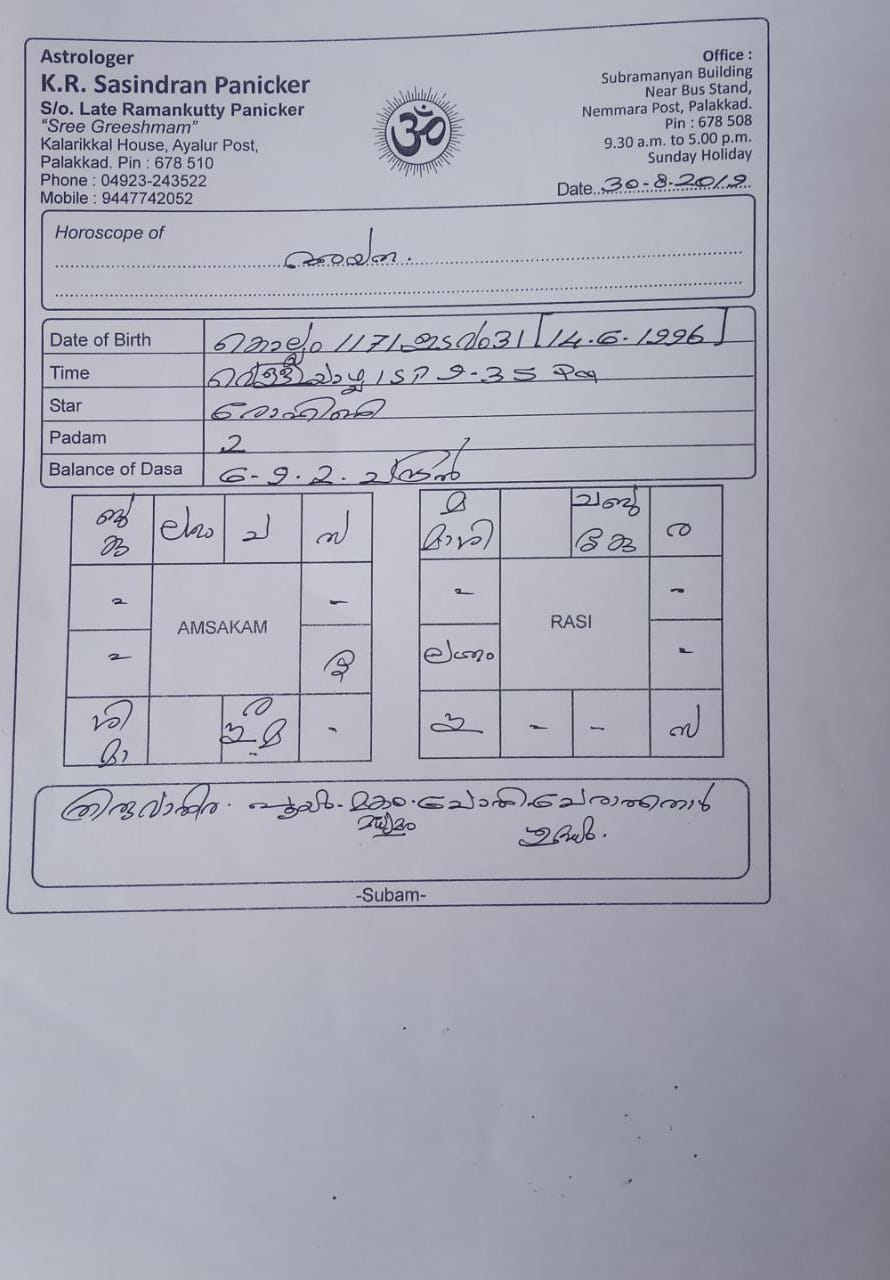 Astrologer
K.R. Sasindran Panicker
S/o. Late Ramankutty Panicker
“Sree Greeshmam”
Kalarikkal House, Ayalur Post,
Palakkad. Pin : 678 510
Phone : 04923-243522
Mobile : 9447742052
ॐ
Office :
Subramanyan Building
Near Bus Stand,
Nemmara Post, Palakkad.
Pin : 678 508
9.30 a.m. to 5.00 p.m.
Sunday Holiday
Date..30-8-2019
Horoscope of
Date of Birth കൊല്ലം 1171 ഇടവം 31 [14-6-1996]
Time വെള്ളിയാഴ്ച IST 9-35 PM
Star രോഹിണി
Padam 2
Balance of Dasa 6-9-2. ചന്ദ്രൻ
ബു കു ലഗ്നം ച സ
AMSAKAM
ശി മാ ര
മ മാ ശി ച ബു കു ര
RASI
ലഗ്നം
സ
തിരുവാതിര. പൂയം. മകം. ചോതി. ചേരാത്തനാൾ
മദ്ധ്യമം
-Subam-